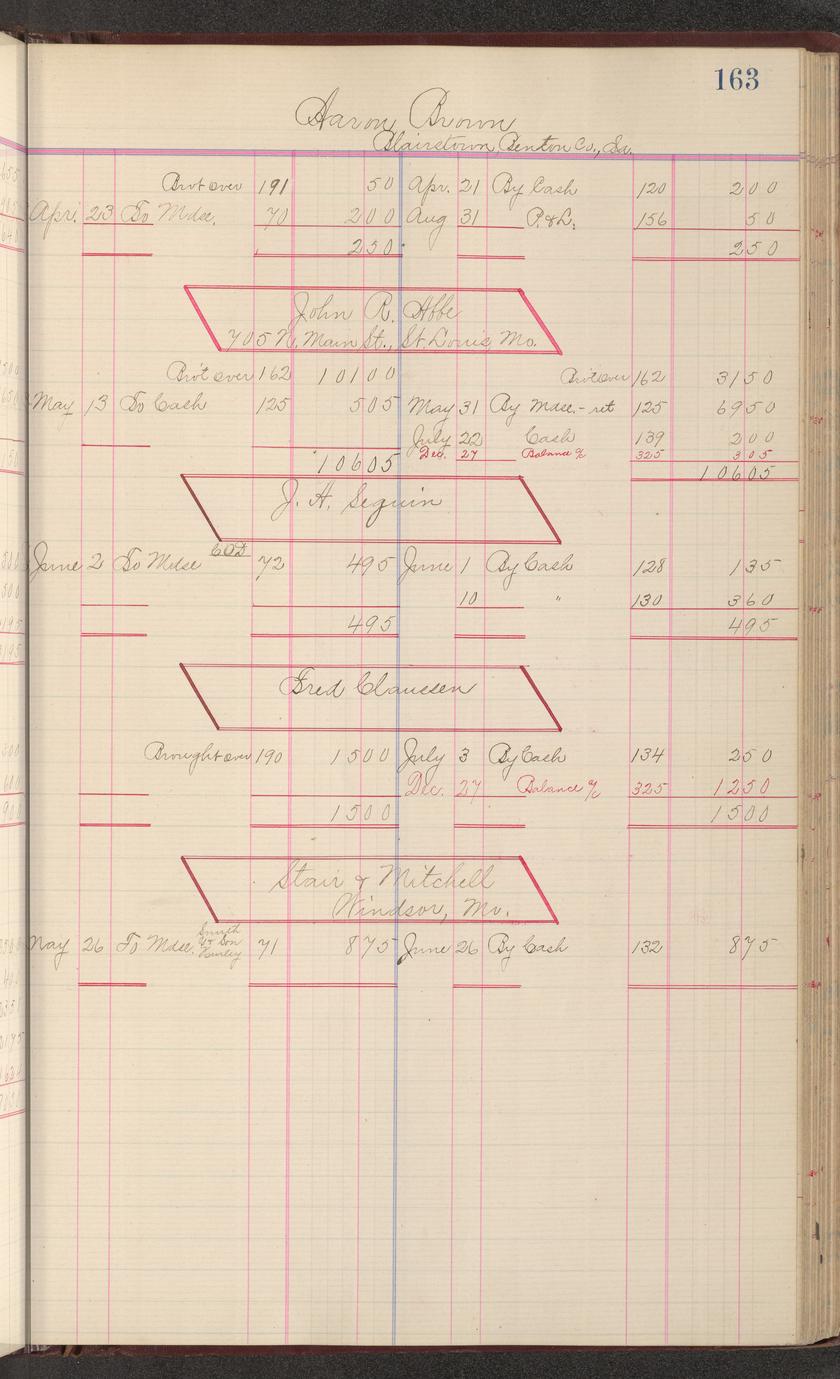 163
Aaron Brown
Blairstown, Benton Co., Ia.
Brot over 191 50 Apr. 21 By Cash 120 200
Apr. 23 To Mdse. 70 200 Aug 31 P. & L. 156 50
250 250
John R. Abbe
705 N. Main St., St. Louis, Mo.
Bro't over 162 10100 Brot over 162 3150
May 13 To Cash 125 505 May 31 By Mdse.- ret 125 6950
July 22 Cash 139 200
Dec. 27 Balance a/c 325 305
10605 10605
J. A. Seguin
June 2 To Mdse COD 72 495 June 1 By Cash 128 135
10 " 130 360
495 495
Fred Claussen
Brought over 190 1500 July 3 By Cash 134 250
Dec. 27 Balance a/c 325 1250
1500 1500
Stair & Mitchell
Windsor, Mo.
May 26 To Mdse. Smith & Son 71 875 June 26 By Cash 132 875